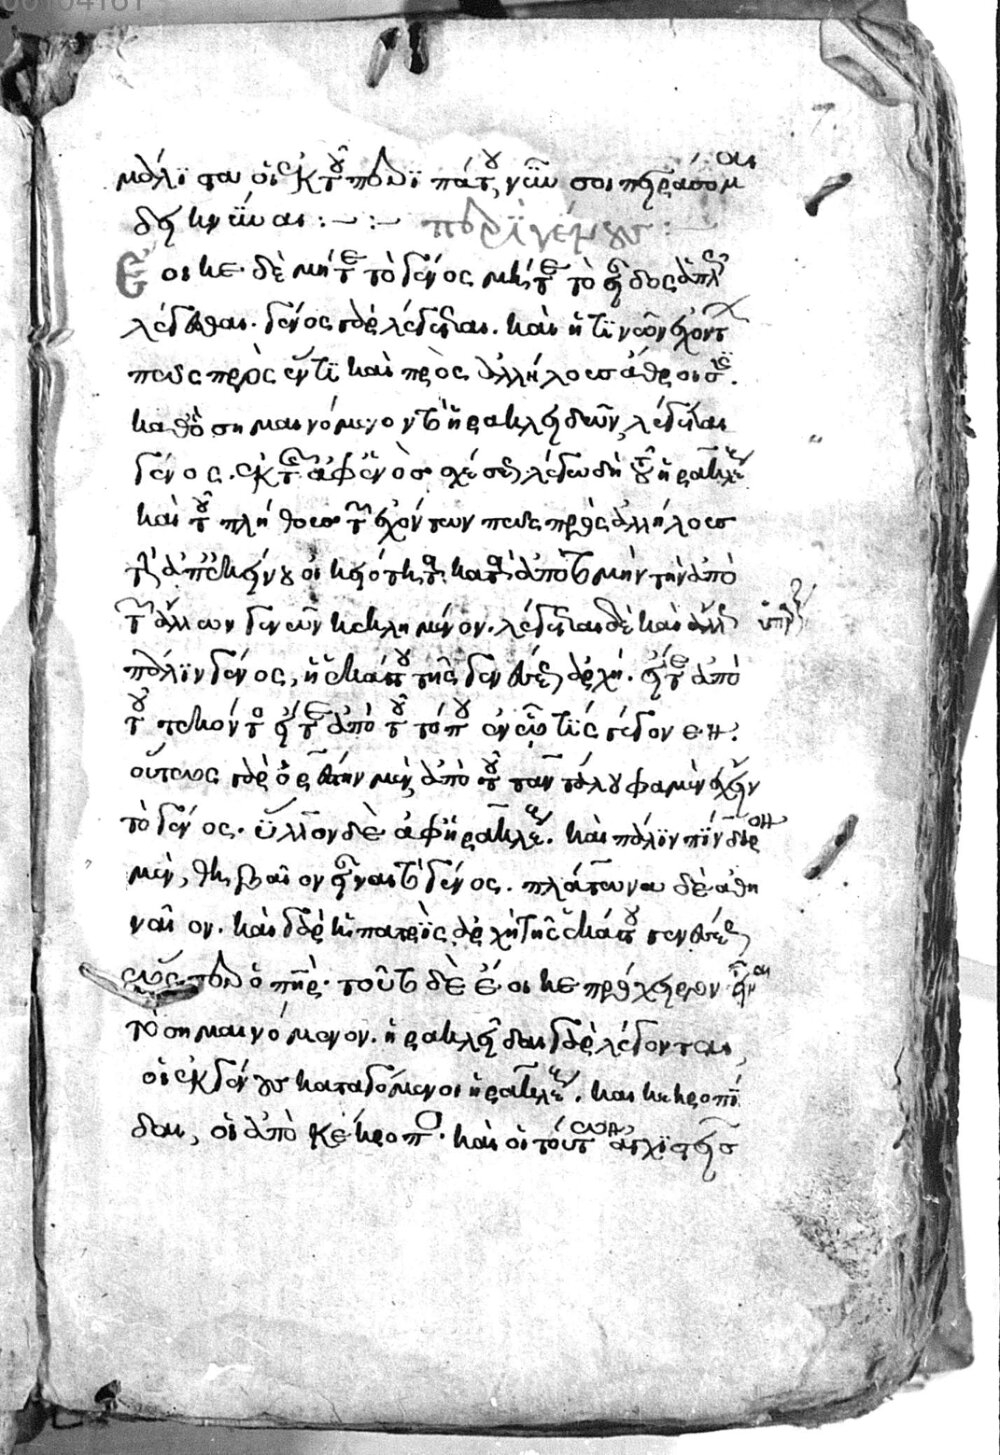 μάλιστα οἱ ἐκ τοῦ περιπάτου νῦν σοι πειράσομαι
δεικνῦναι :– :– περὶ γένους :–
Ἔοικε δὲ μήτε τὸ γένος μήτε τὸ εἶδος ἁπλῶς
λέγεσθαι. γένος γὰρ λέγεται. καὶ ἡ τινῶν ἐχόντων
πως πρὸς ἕν τι καὶ πρὸς ἀλλήλους ἄθροισις.
καθὸ σημαινόμενον τὸ ἡρακλειδῶν λέγεται
γένος. ἐκ τῆς ἀφ' ἑνὸς σχέσεως λέγω δὴ τοῦ ἡρακλέους
καὶ τοῦ πλήθους τῶν ἐχόντων πως πρὸς ἀλλήλους
τὴν ἀπ' ἐκείνου οἰκειότητα. κατὰ ἀποτομὴν τὴν ἀπὸ
τῶν ἄλλων γενῶν κεκλημένον. λέγεται δὲ καὶ ἄλλως
πάλιν γένος, ἡ ἑκάστου τῆς γενέσεως ἀρχή. εἴτε ἀπὸ
τοῦ τεκόντος εἴτε ἀπὸ τοῦ τόπου ἐν ᾧ τις γέγονεν.
οὕτως γὰρ ὀρέστην μὲν ἀπὸ τοῦ ταντάλου φαμὲν ἔχειν
τὸ γένος. ὕλλον δὲ ἀφ' ἡρακλέους. καὶ πάλιν πίνδαρον
μὲν, θηβαῖον εἶναι τὸ γένος. πλάτωνα δὲ ἀθη
ναῖον. καὶ γὰρ ἡ πατρὶς ἀρχὴ τῆς ἑκάστου γενέσεως
ὥσπερ ὁ πατήρ. τοῦτο δὲ ἔοικε πρόχειρον εἶναι
τὸ σημαινόμενον. ἡρακλεῖδαι γὰρ λέγονται,
οἱ ἐκ γένους καταγόμενοι ἡρακλέους. καὶ κεκροπί
δαι, οἱ ἀπὸ κέκροπος. καὶ οἱ τούτων ἀγχιστεῖς